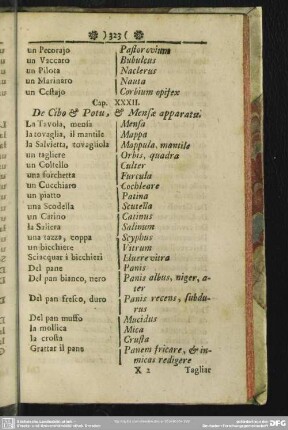 ) 323 (
un Pecorajo Pastor ovium
un Vaccaro Bubulcus
un Pilota Naclerus
un Marinaro Nauta
un Cestajo Corbium opifex
Cap. XXXII.
De Cibo & Potu, & Mensæ apparatu.
La Tavola, mensa Mensa
la tovaglia, il mantile Mappa
la Salvietta, tovagliola Mappula, mantile
un tagliere Orbis, quadra
un Coltello Culter
una forchetta Furcula
un Cucchiaro Cochleare
un piatto Patina
una Scodella Scutella
un Catino Catinus
la Saliera Salinum
una tazza, coppa Scyphus
un bicchiere Vitrum
Sciacquar i bicchieri Eluere vitra
Del pane Panis
Del pan bianco, nero Panis albus, niger, a-
ter
Del pan fresco, duro Panis recens, subdu-
rus
Del pan muffo Mucidus
la mollica Mica
la crosta Crusta
Grattar il pane Panem fricare, & in
micas redigere
X 2 Tagliar